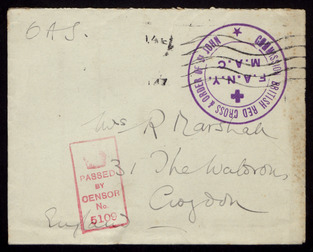 OAS
CONVOY BRITISH RED CROSS & ORDER OF ST JOHN
F.A.N.Y.
M.A.C.
Mrs R Marshall
31 The Waldrons
Croydon
England
PASSED
BY
CENSOR
No.
5109